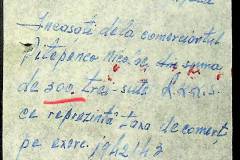 Încasati de la comerciantul
Pitepenco Nicolae suma
de 300, trei-sute R.M.S.
ce reprezintă taxa de comerț
pe exerc. 1942/43